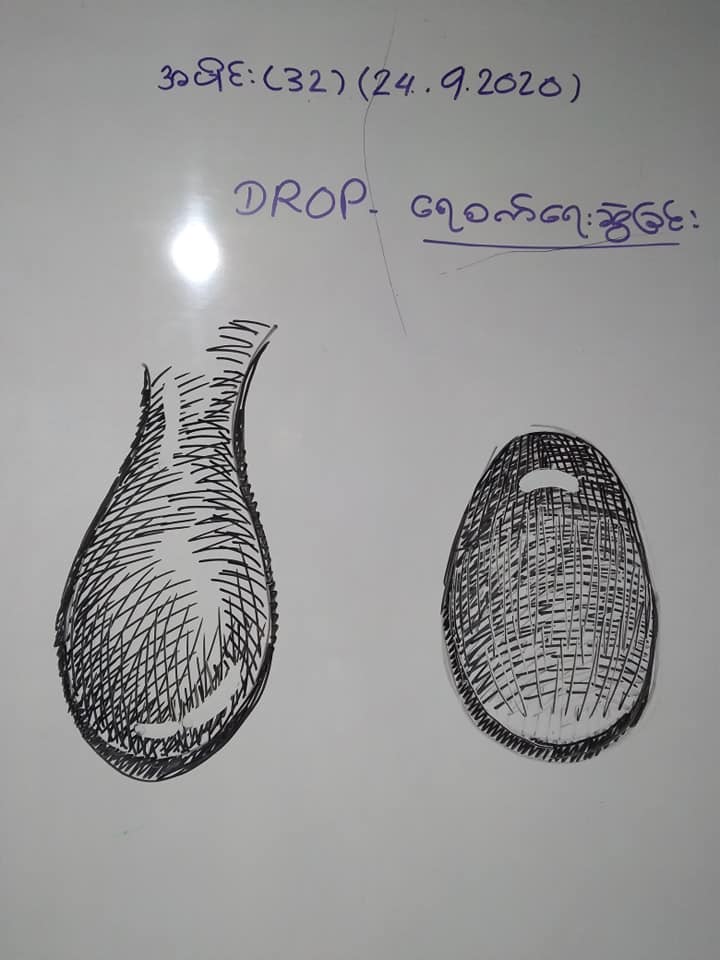 အပိုင်း (32) (24.9.2020)
DROP- ရေစက်ရေးဆွဲခြင်း